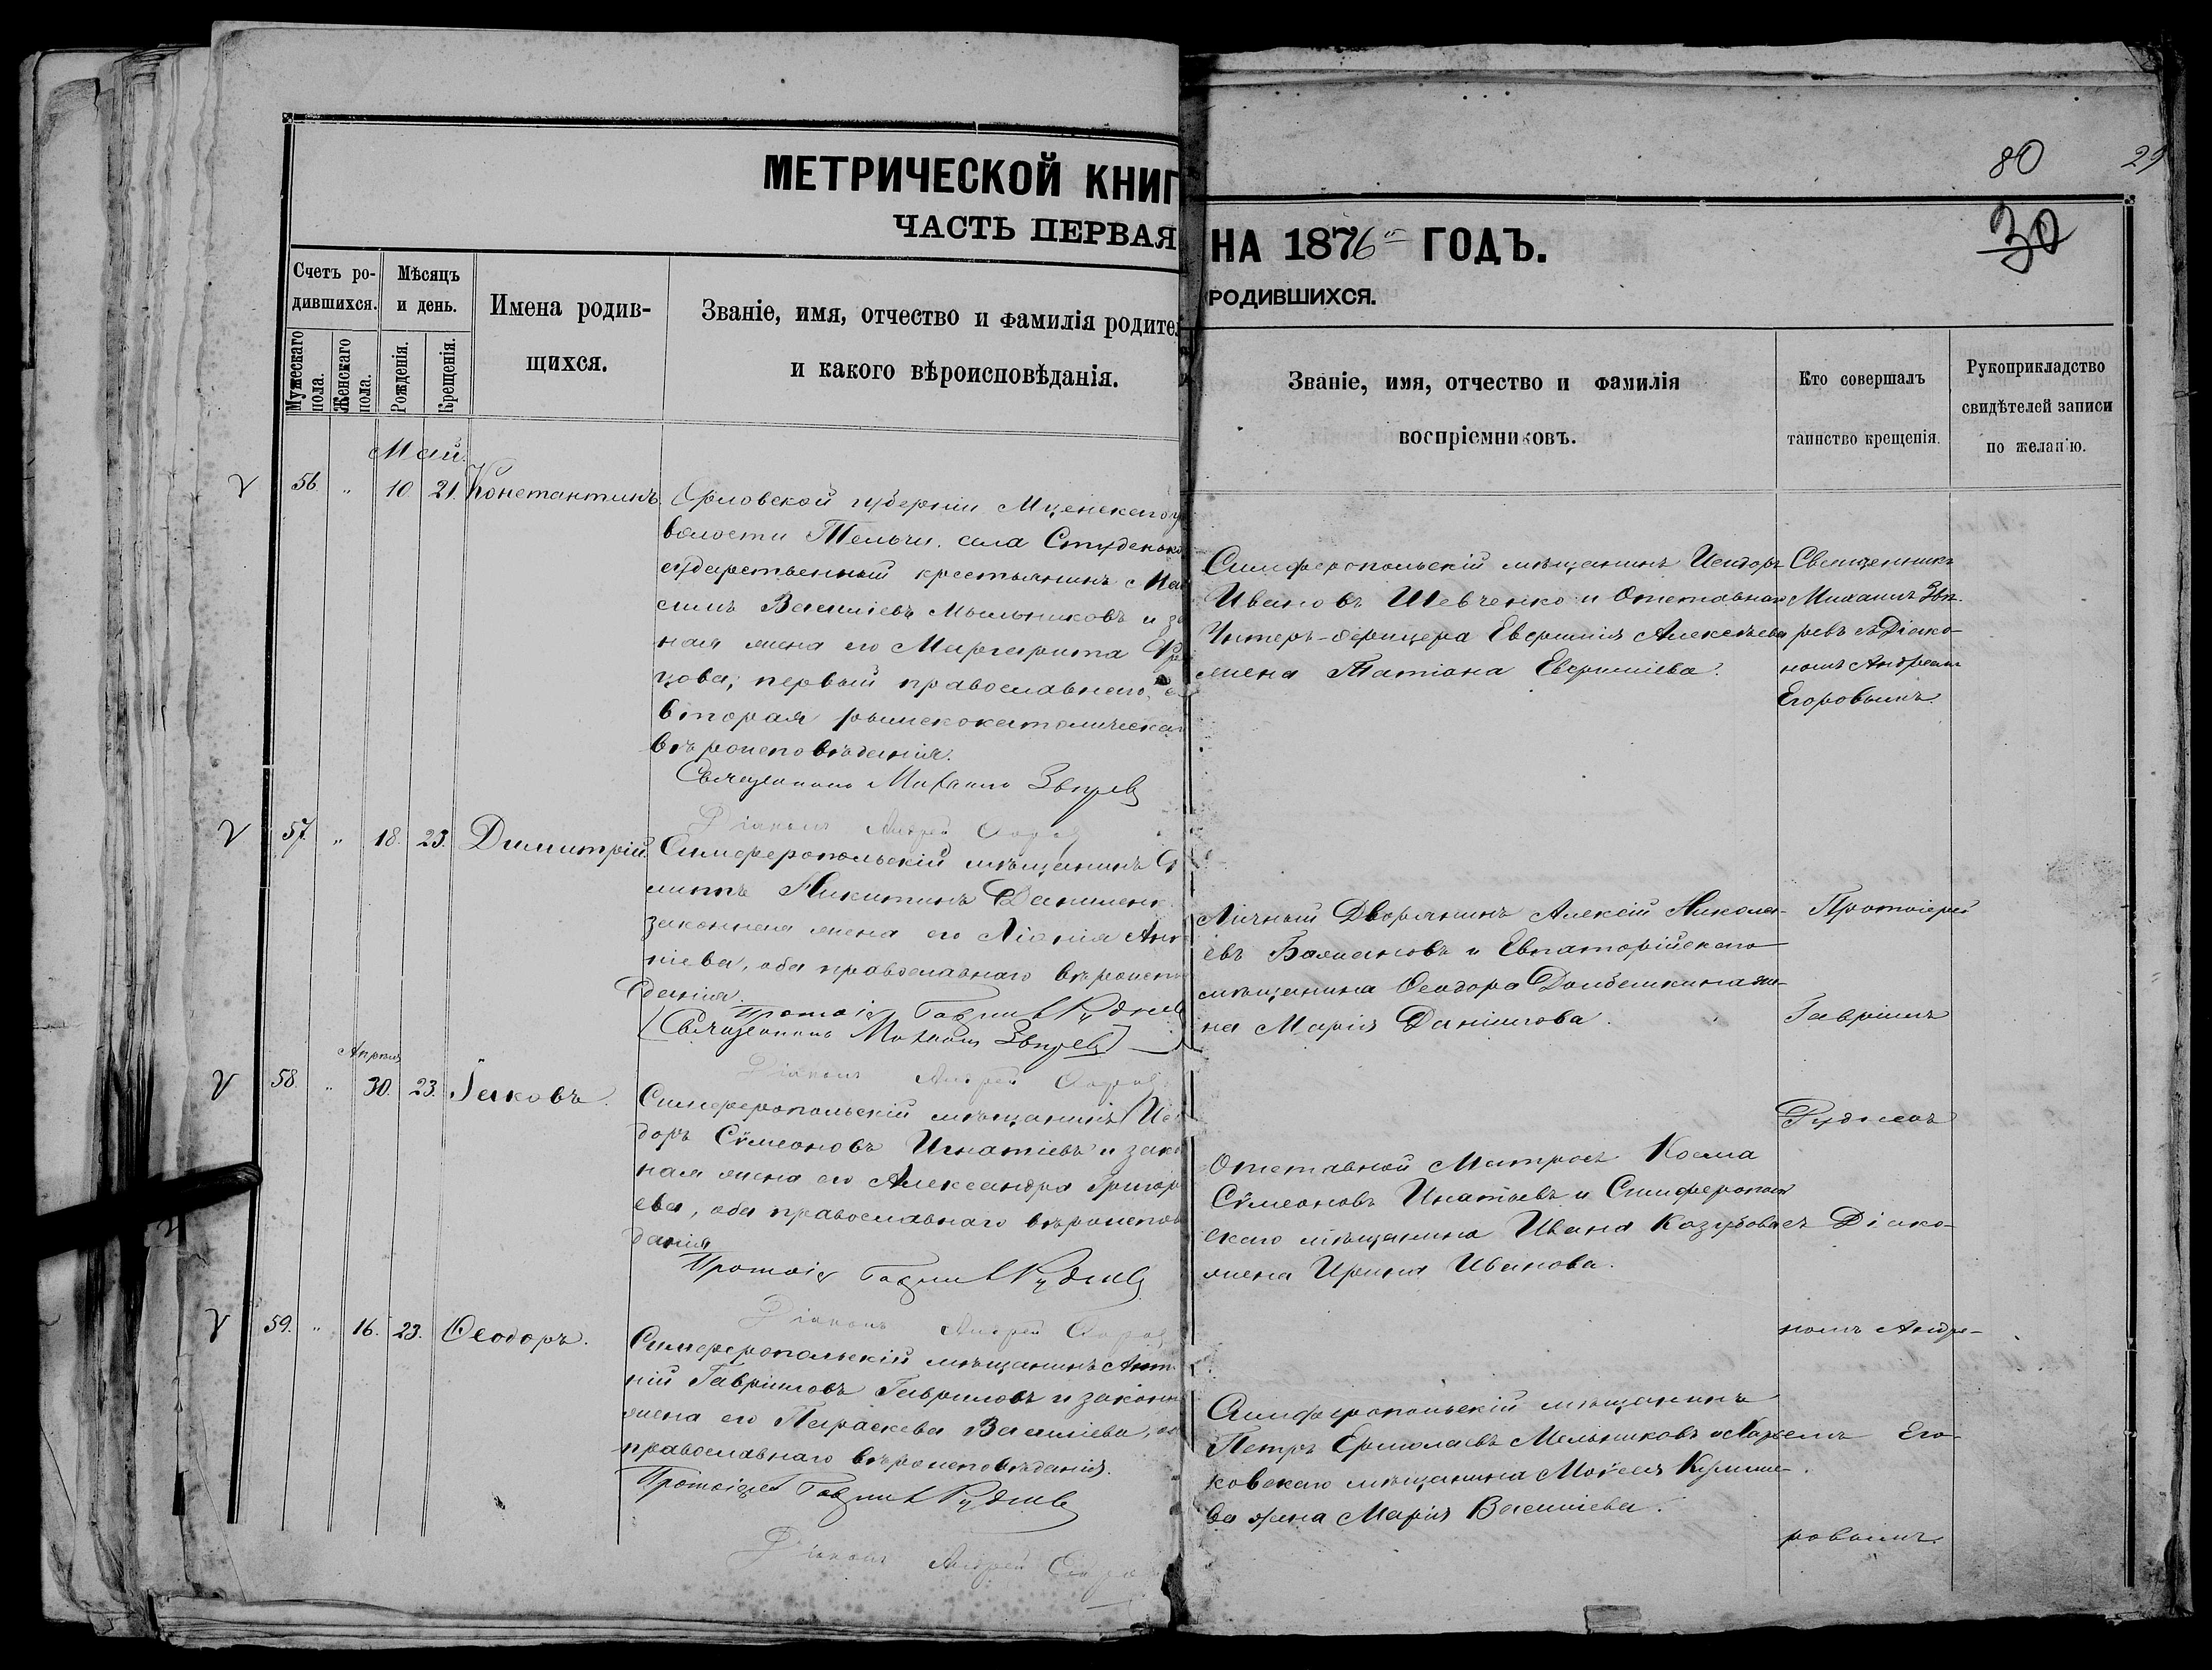 80 29
30
МЕТРИЧЕСКОЙ КНИГ
ЧАСТЬ ПЕРВАЯ
НА 1876 ГОДЪ.
РОДИВШИХСЯ.
Счетъ ро-
дившихся.
Мужескаго пола.
Женскаго пола.
Мѣсяцъ
и день.
Рожденія.
Крещенія.
Имена родив-
шихся.
Званіе, имя, отчество и фамилія родител
и какого вѣроисповѣданія.
Званіе, имя, отчество и фамилія
воспріемниковъ.
Кто совершалъ
таинство крещенія.
Рукоприкладство
свидѣтелей записи
по желанію.
Май.
56. " 10 21. Константинъ.
Орловской губерніи Мценскаго у
волости Тельчи, села Студенько
сударственный крестьянинъ Мак
симъ Василіевъ Мыльниковъ и за
ная жена его Маргарита
цова; первый православнаго, а
вторая римскокатолическаго
вѣроисповѣданія.
Священникъ Михаилъ Звѣревъ
Діаконъ Андрей
Симферопольскій мѣщанинъ Исидоръ
Ивановъ Шевченко и Отставнаго
Унтеръ-Офицера Евфимія Алексѣева
жена Татіана Евфиміева.
Священникъ
Михаилъ Звѣ-
ревъ съ Діако-
номъ Андреемъ
Егоровымъ.
57. " 18. 23. Димитрій.
Симферопольскій мѣщанинъ
литъ Никитинъ Данилен
законная жена его Лідія Ант
ніева, оба православнаго вѣроиспо
вѣданія.
Протоіе Гавріилъ Рудневъ
(Священникъ Михаилъ Звѣревъ)
Діаконъ Андрей
Личный Дворянинъ Алексій Никола-
евъ и Евпаторійскаго
мѣщанина Ѳеодора же-
на Марія Даніилова.
Протоіерей
Гавріилъ
Рудневъ
Апрѣль
58. " 30. 23. Іаковъ.
Симферопольскій мѣщанинъ Иси
доръ Сѵмеоновъ Игнатіевъ и закон
ная жена его Александра Григорі
ева, оба православнаго вѣроисповѣ
данія
Протоіе Гавріилъ Рудневъ
Діаконъ Андрей
Отставной Матросъ Косма
Сѵмеоновъ Игнатьевъ и Симферополь
скаго мѣщанина Ивана Козубова
жена Ирина Иванова.
съ Діако-
номъ Андре-
59. " 16. 23. Ѳеодоръ.
Симферопольскій мѣщанинъ Анто
ній Гавріиловъ Гавриловъ и законн
жена его Параскева Василіева, об
православнаго вѣроисповѣданія.
Протоіерей Гавріилъ Рудневъ
Діаконъ Андрей
Симферопольскій мѣщанинъ
Петръ Ермолаевъ Мельниковъ и
ковскаго мѣщанина Моѵсея
ва жена Марія Василіева.
емъ Его-
ровымъ.